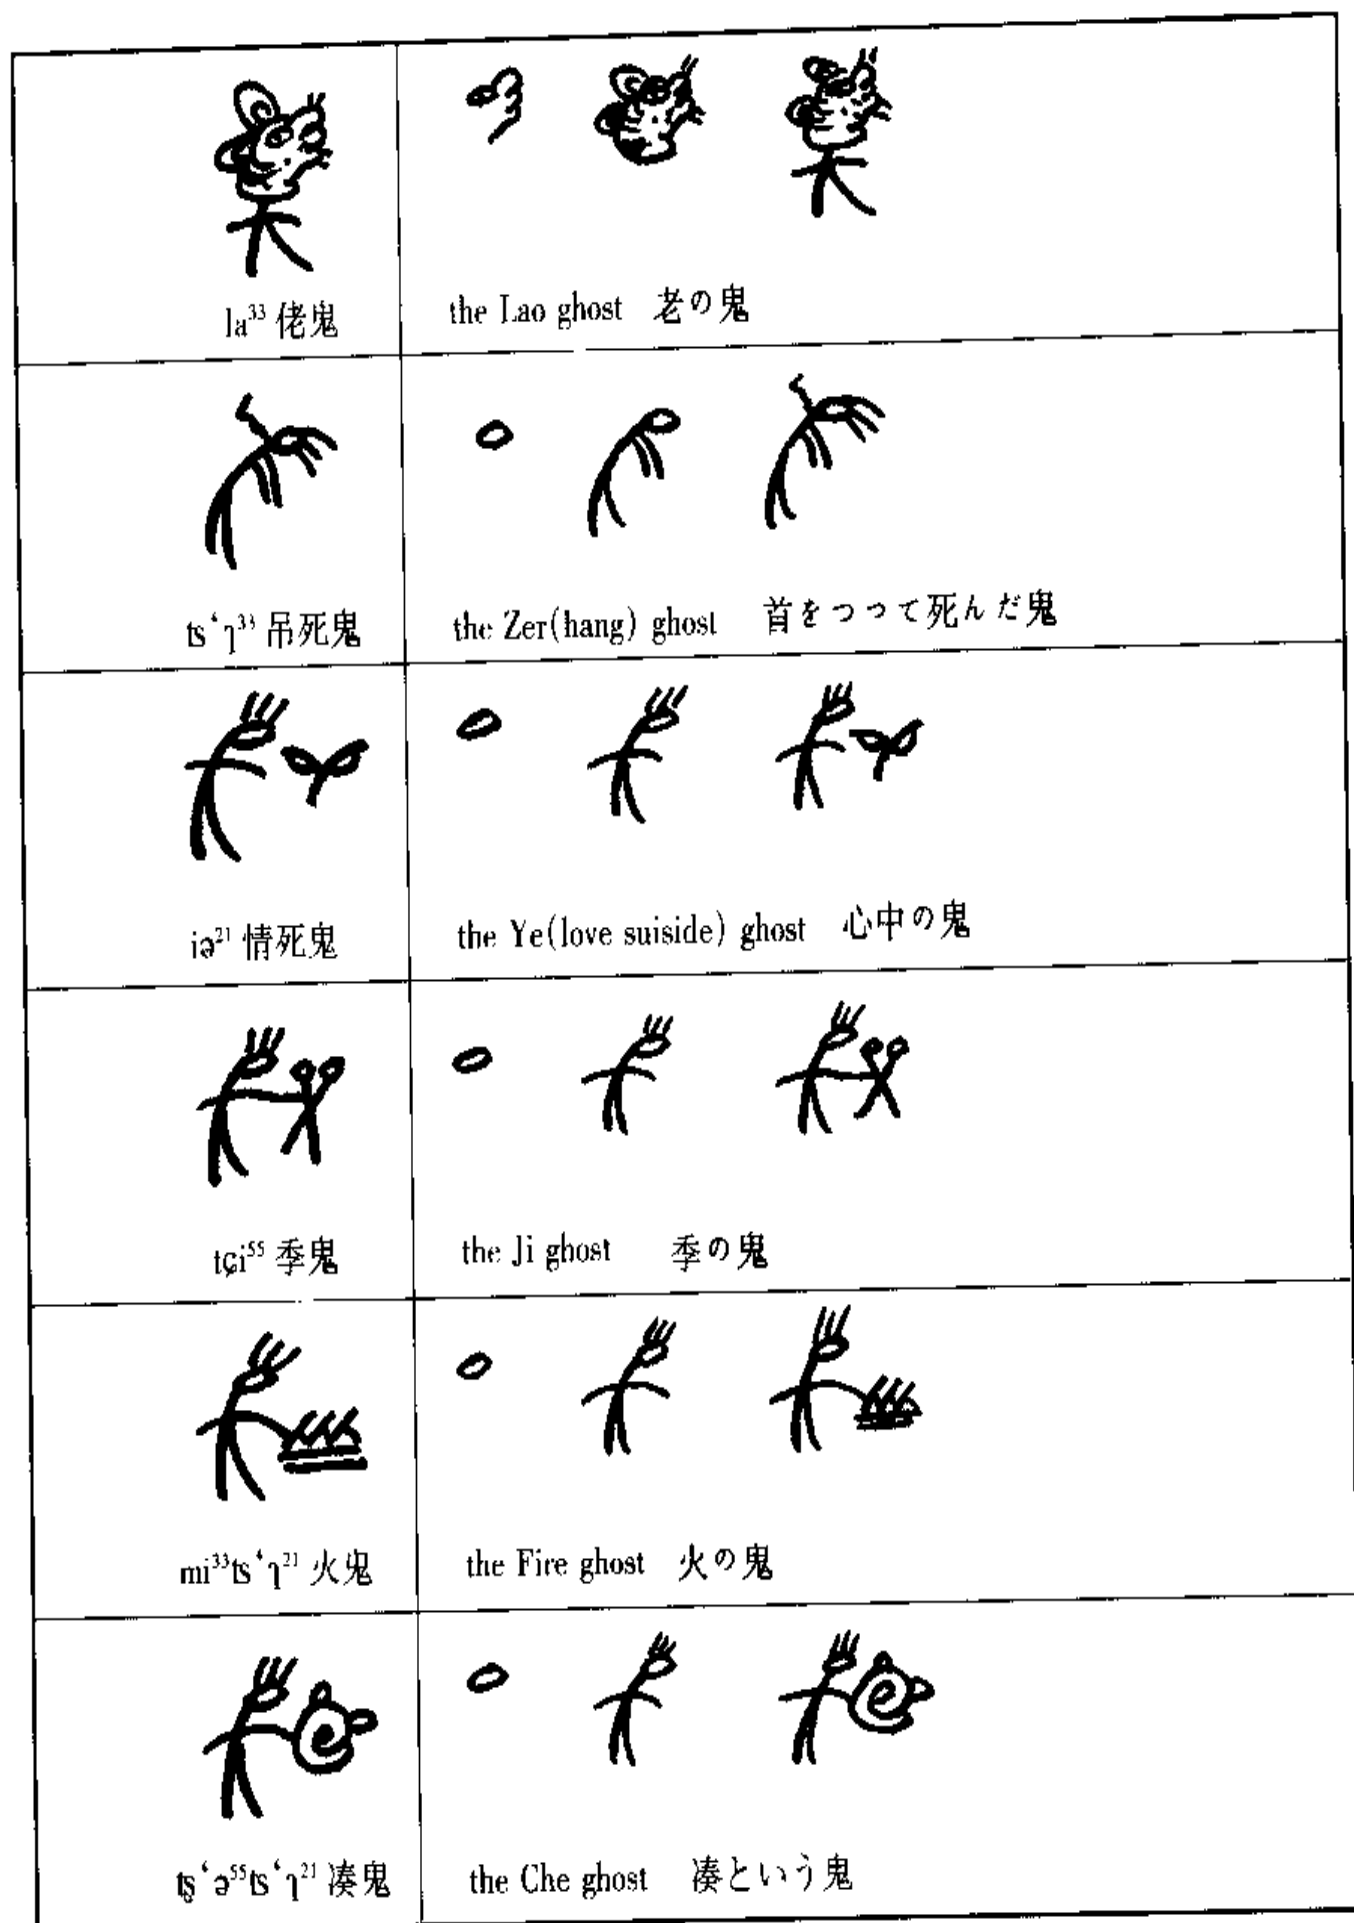 la³³ 佬鬼
the Lao ghost 老の鬼
ts‘ʅ³³ 吊死鬼
the Zer(hang) ghost 首をつって死んだ鬼
iə²¹ 情死鬼
the Ye(love suiside) ghost 心中の鬼
tɕi⁵⁵ 季鬼
the Ji ghost 季の鬼
mi³³ts‘ʅ²¹ 火鬼
the Fire ghost 火の鬼
tʂ‘ə⁵⁵ts‘ʅ²¹ 凑鬼
the Che ghost 凑という鬼